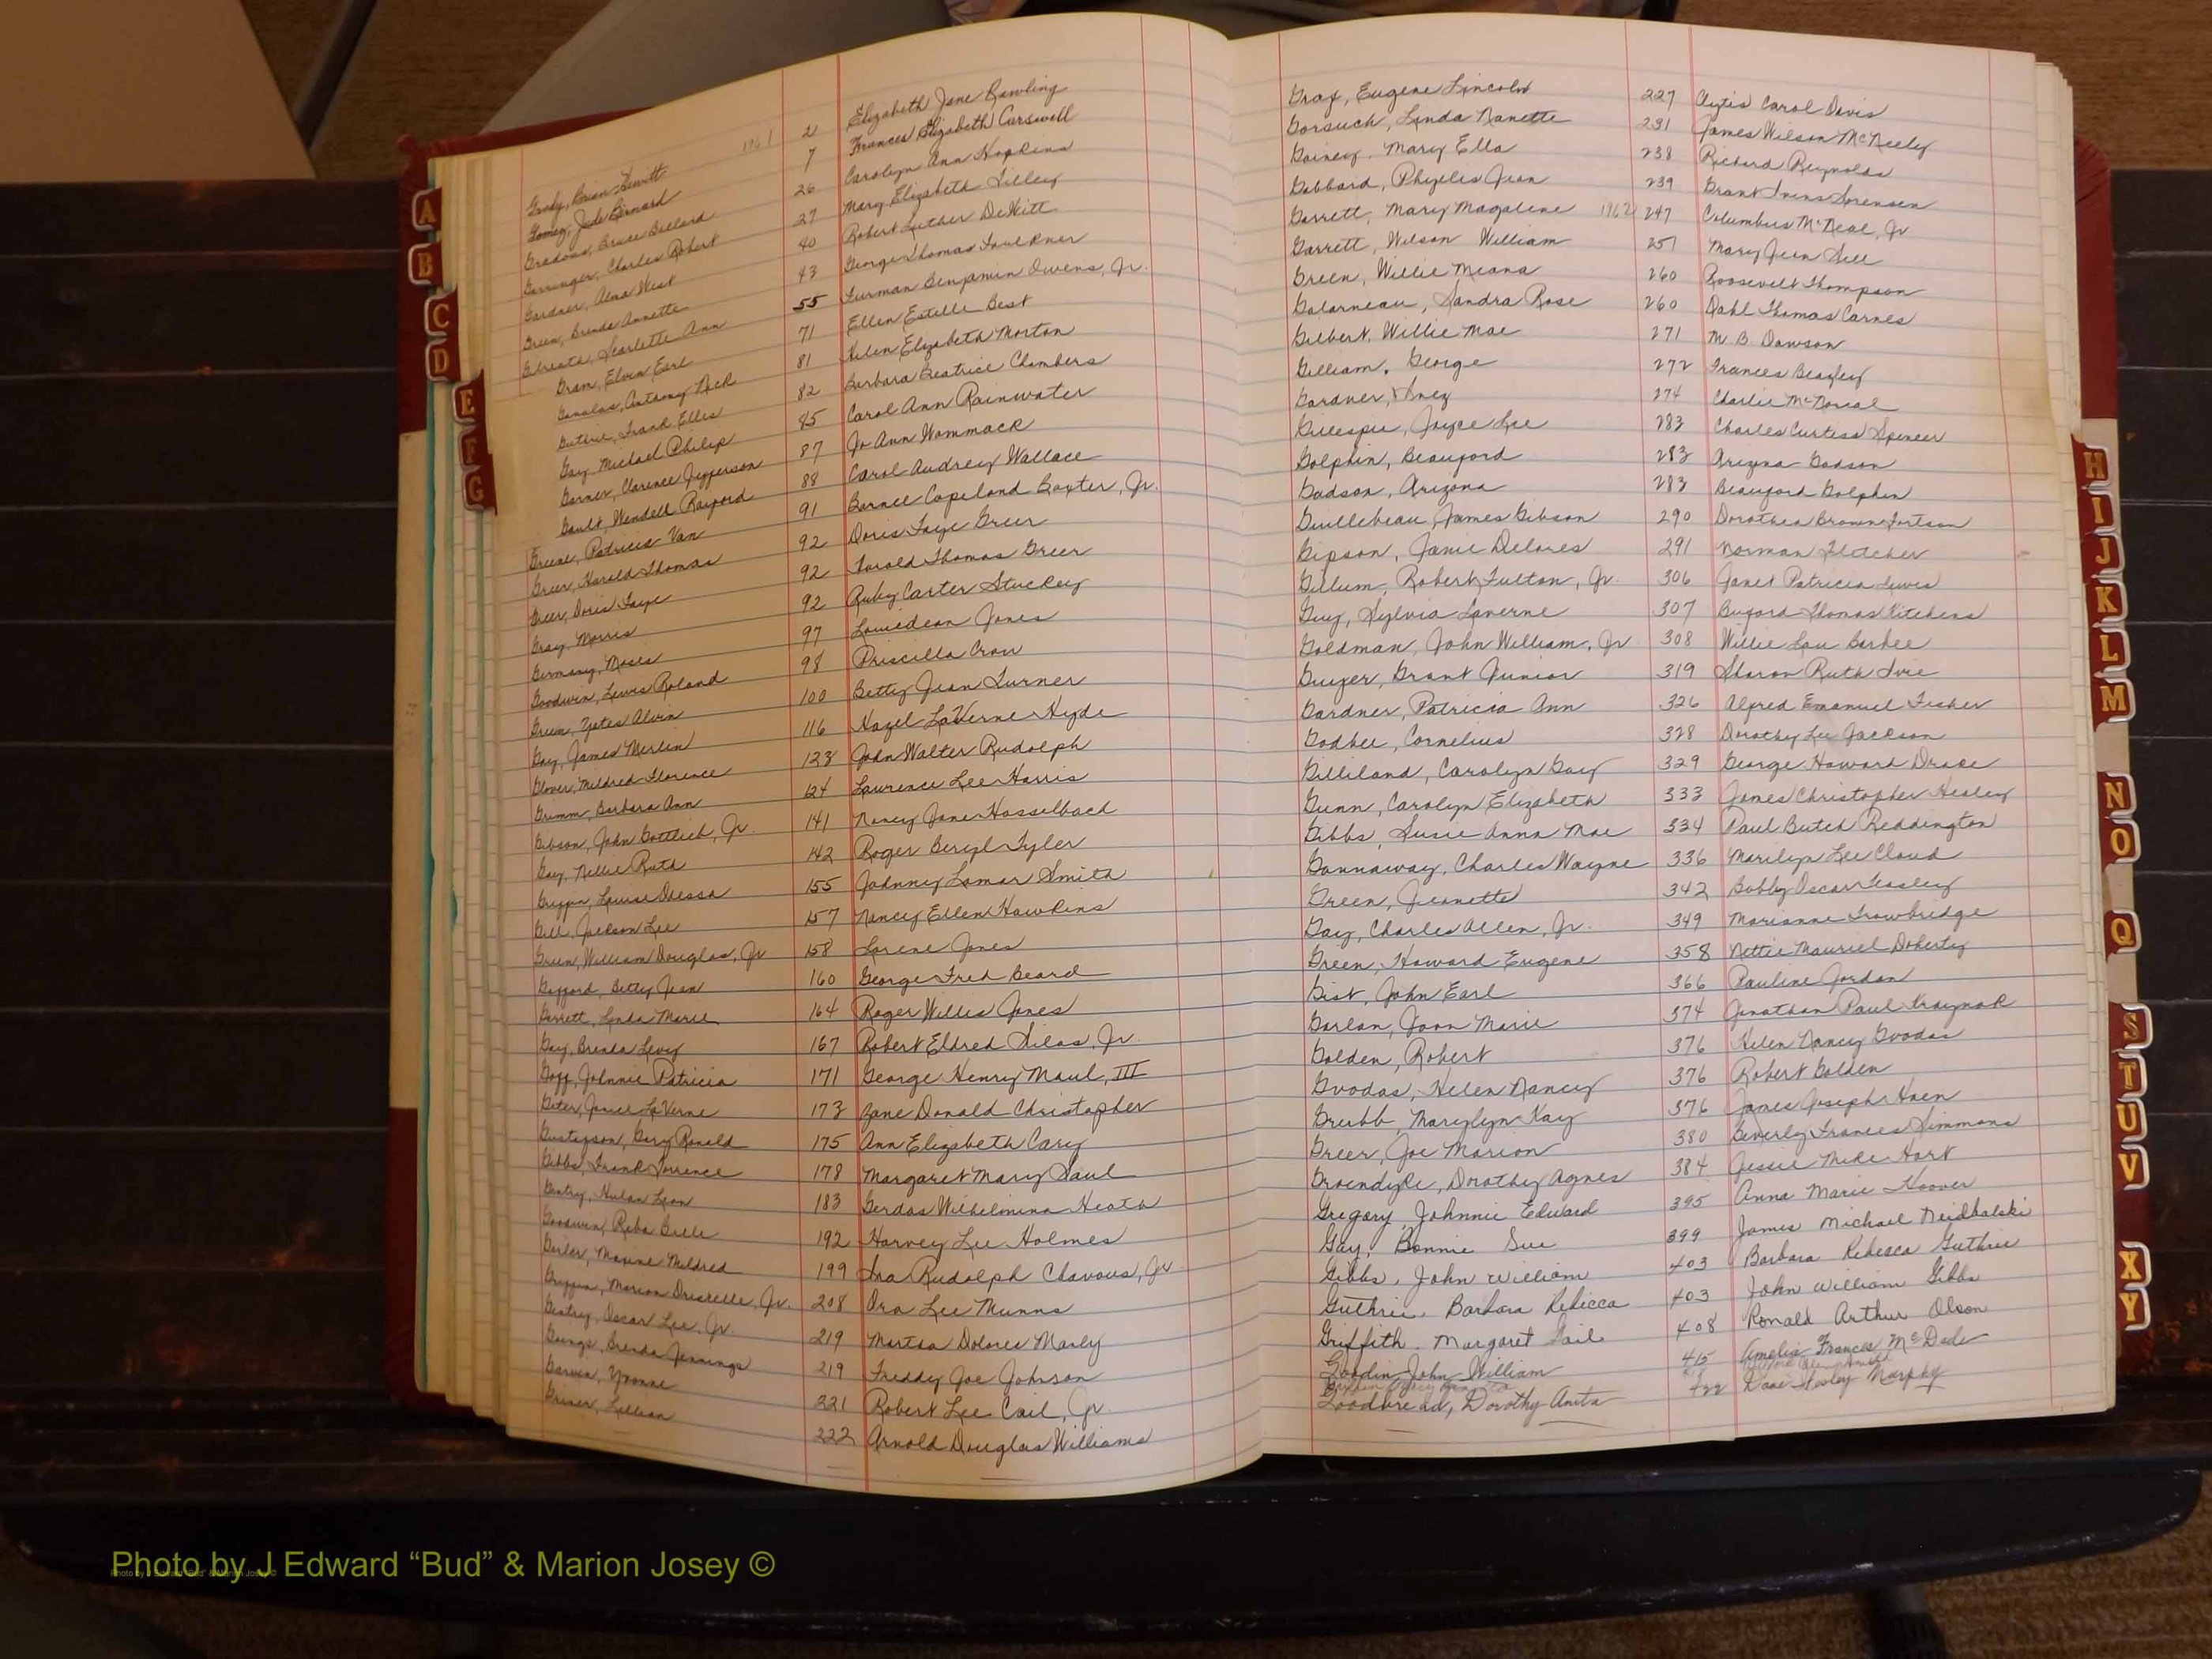 1961
Grady, Brian Hewitt 2 Elizabeth Jane Rawling
Gomez, Jude Bernard 7 Frances Elizabeth Carswell
Gradous, Bruce Ballard 26 Carolyn Ann Hopkins
Garringer, Charles Robert 27 Mary Elizabeth Lilley
Gardner, Alma West 40 Robert Luther DeWitt
Green, Brenda Annette 43 George Thomas Faulkner
Gilreath, Scarlette Ann 55 Furman Benjamin Owens, Jr.
Gram, Elvin Earl 71 Ellen Estelle Best
Anthony Nick 81 Helen Elizabeth Morton
Guthrie, Frank Ellis 82 Barbara Beatrice Chambers
Gay, Michael Philip 85 Carol Ann Rainwater
Garner, Clarence Jefferson 87 Jo Ann Wommack
Gault, Wendell Raiford 88 Carol Audrey Wallace
Greene, Patricia Van 91 Barnee Copeland Baxter, Jr.
Greer, Harold Thomas 92 Doris Faye Greer
Greer, Doris Faye 92 Harold Thomas Greer
Gray, Morris 92 Ruby Carter Stuckey
Germany, Moses 97 Louiedean Jones
Goodwin, Lewis Roland 98 Priscilla Crow
Green, Yates Alvin 100 Betty Jean Turner
Gay, James Merlin 116 Hazel LaVerne Hyde
Glover, Mildred Florence 123 John Walter Rudolph
Grimm, Barbara Ann 124 Lawrence Lee Harris
Gibson, John Gottlieb, Jr. 141 Nancy Jane Hasselback
Gay, Nellie Ruth 142 Roger Beryl Tyler
Griffin, Louise Odessa 155 Johnny Lamar Smith
Gill, Jackson Lee 157 Nancy Ellen Hawkins
Green, William Douglas, Jr 158 Lorene Jones
Gafford, Betty Jean 160 George Fred Beard
Garrett, Linda Marie 164 Roger Willis Jones
Gay, Brenda Levey 167 Robert Eldred Silas, Jr.
Goff, Johnnie Patricia 171 George Henry Maul, III
Geter, Janice LaVerne 173 Zane Donald Christopher
Gustafson, Gary Ronald 175 Ann Elizabeth Cary
Gibbs, Frank Torrence 178 Margaret Mary Saul
Gentry, Hulan Leon 183 Gerdas Wilhelmina Heath
Goodwin, Reba Belle 192 Harvey Lee Holmes
Geiler, Maxine Mildred 199 Ira Rudolph Chavous, Jr
Griffin, Marion Jr. 208 Ora Lee Munns
Gentry, Oscar Lee, Jr. 219 Martha Dolores Marly
Brenda Jennings 219 Freddy Joe Johnson
Garvin, Yvonne 221 Robert Lee Cail, Jr.
Griner, Lillian 222 Arnold Douglas Williams
Gray, Eugene Lincoln 227 Clytis Carol Davis
Gorsuch, Linda Nanette 231 James Wilson McNeely
Gainey, Mary Ella 238 Richard Reynolds
Gabbard, Phyllis Jean 239 Grant Ivins Sorensen
Garrett, Mary Magalene 1962 247 Columbus McNeal, Jr
Garrett, Wilson William 251 Mary Jean Sell
Green, Willie Meana 260 Roosevelt Thompson
Galarneau, Sandra Rose 260 Dahl Thomas Carnes
Gilbert, Willie Mae 271 M. B. Dawson
Gilliam, George 272 Frances Beasley
Gardner, Inez 274 Charlie McNorial
Gillespie, Joyce Lee 283 Charles Curtiss Spencer
Golphin, Beauford 283 Arizona Godson
Godson, Arizona 283 Beauford Golphin
Guillebeau, James Gibson 290 Dorothea Browne Fortson
Gipson, Janie Delores 291 Norman Fletcher
Gillum, Robert Fulton, Jr. 306 Janet Patricia Lewis
Guy, Sylvia Laverne 307 Buford Thomas Kitchens
Goldman, John William, Jr 308 Willie Lou Barbee
Guyer, Grant Junior 319 Sharon Ruth Ivie
Gardner, Patricia Ann 326 Alfred Emanuel Fisher
Godbee, Cornelius 328 Dorothy Lee Jackson
Gilliland, Carolyn Gay 329 George Howard Drake
Gunn, Carolyn Elizabeth 333 James Christopher Healey
Gibbs, Susie Anna Mae 334 Paul Butch Reddington
Gannaway, Charles Wayne 336 Marilyn Lee Cloud
Green, Jeanette 342 Bobby Oscar Teasley
Gay, Charles Allen, Jr. 349 Marianne Trowbridge
Green, Howard Eugene 358 Nettie Mauriel Doherty
Gist, John Earl 366 Pauline Jordan
Garlan, Joan Marie 374 Jonathan Paul Kraynak
Golden, Robert 376 Helen Nancy Gvodas
Gvodas, Helen Nancy 376 Robert Golden
Grubb, Marylyn Kay 376 James Joseph Haen
Greer, Joe Marion 380 Beverly Frances Simmons
Groendyke, Dorothy Agnes 384 Jessie Mike Hart
Gregory Johnnie Edward 395 Anna Marie Hoover
Gay, Bonnie Sue 399 James Michael Neidhalski
Gibbs, John William 403 Barbara Rebecca Guthrie
Guthrie, Barbara Rebecca 403 John William Gibbs
Griffith, Margaret Gail 408 Ronald Arthur Olson
Goodin, John William 415 Amelia Frances McDade
Goodbread, Dorothy Anita 422 Dave Wesley Murphy
A
B
C
D
E
F
G
H
I
J
K
L
M
N
O
Q
S
T
U
V
X
Y
Photo by J Edward “Bud” & Marion Josey ©
Photo by J Edward "Bud" & Marion Josey ©